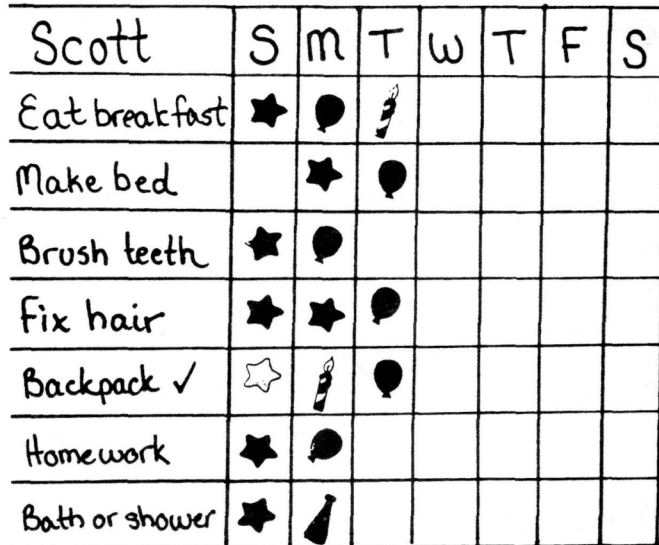 Scott S M T W T F S
Eat breakfast
Make bed
Brush teeth
Fix hair
Backpack ✓
Homework
Bath or shower